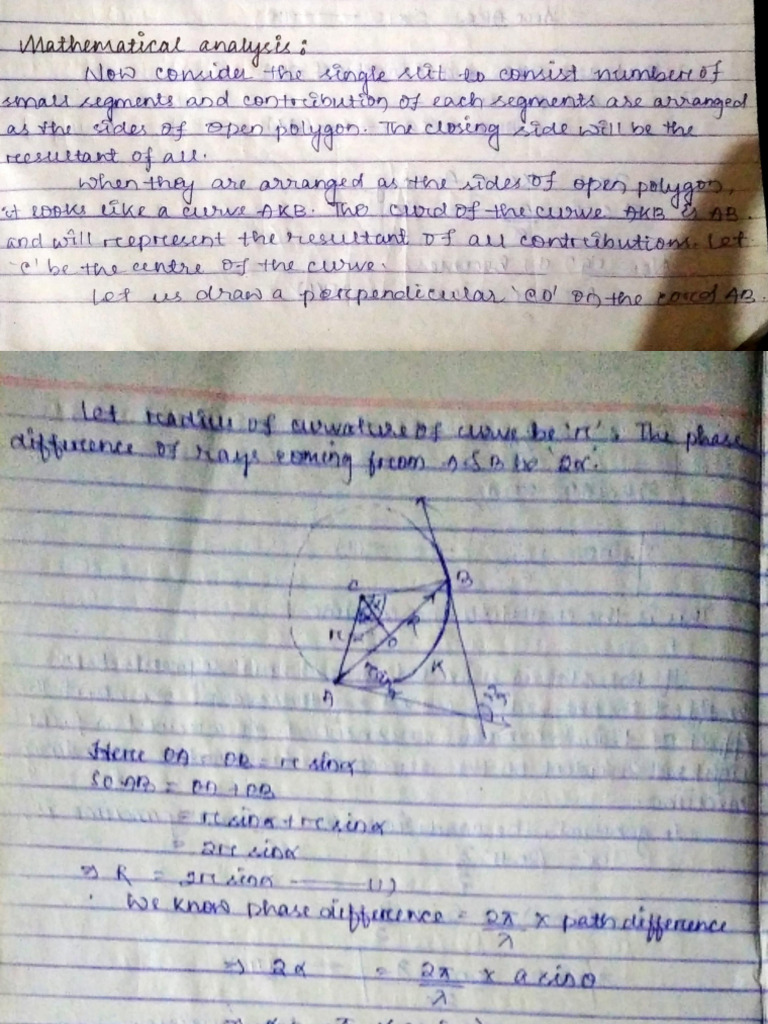 Mathematical analysis:
Now consider the single slit to consist number of
small segments and contribution of each segments are arranged
as the sides of open polygon. The closing side will be the
resultant of all.
When they are arranged as the sides of open polygon,
it looks like a curve AKB. The curd of the curve AKB is AB.
and will represent the resultant of all contributions. Let
'c' be the centre of the curve.
Let us draw a perpendicular 'CD' on the AB.
Let radius of curvature of curve be 'r'. The phase
difference of rays coming from A & B be '2α'.
C
B
r
K
A
Here DA = DB = r sinα
So AB = DA + DB
= r sinα + r sinα
= 2r sinα
⇒ R = 2r sinα ——— (1)
We know phase difference = 2π/λ × path difference
⇒ 2α = 2π/λ × a sinθ